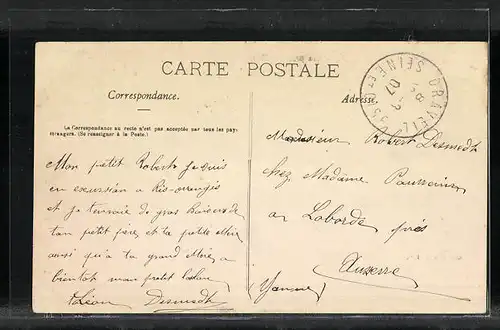 CARTE POSTALE
Correspondance.
Adresse.
La Correspondance au recto n'est pas acceptée par tous les pays
étrangers. (Se renseigner à la Poste.)
DRAVEIL SEINE ET OISE
8 07
Monsieur Robert Desmedt
chez Madame
a Laborde près
Auxerre
(Yonne)
Mon petit Robert je suis
en excursion a Ris-orangis
et je t'envoie de gros Baisers de
ton petit frère et ta petite Mère
ainsi qu'a ta grand Mère a
bientot mon petit
Léon Desmedt